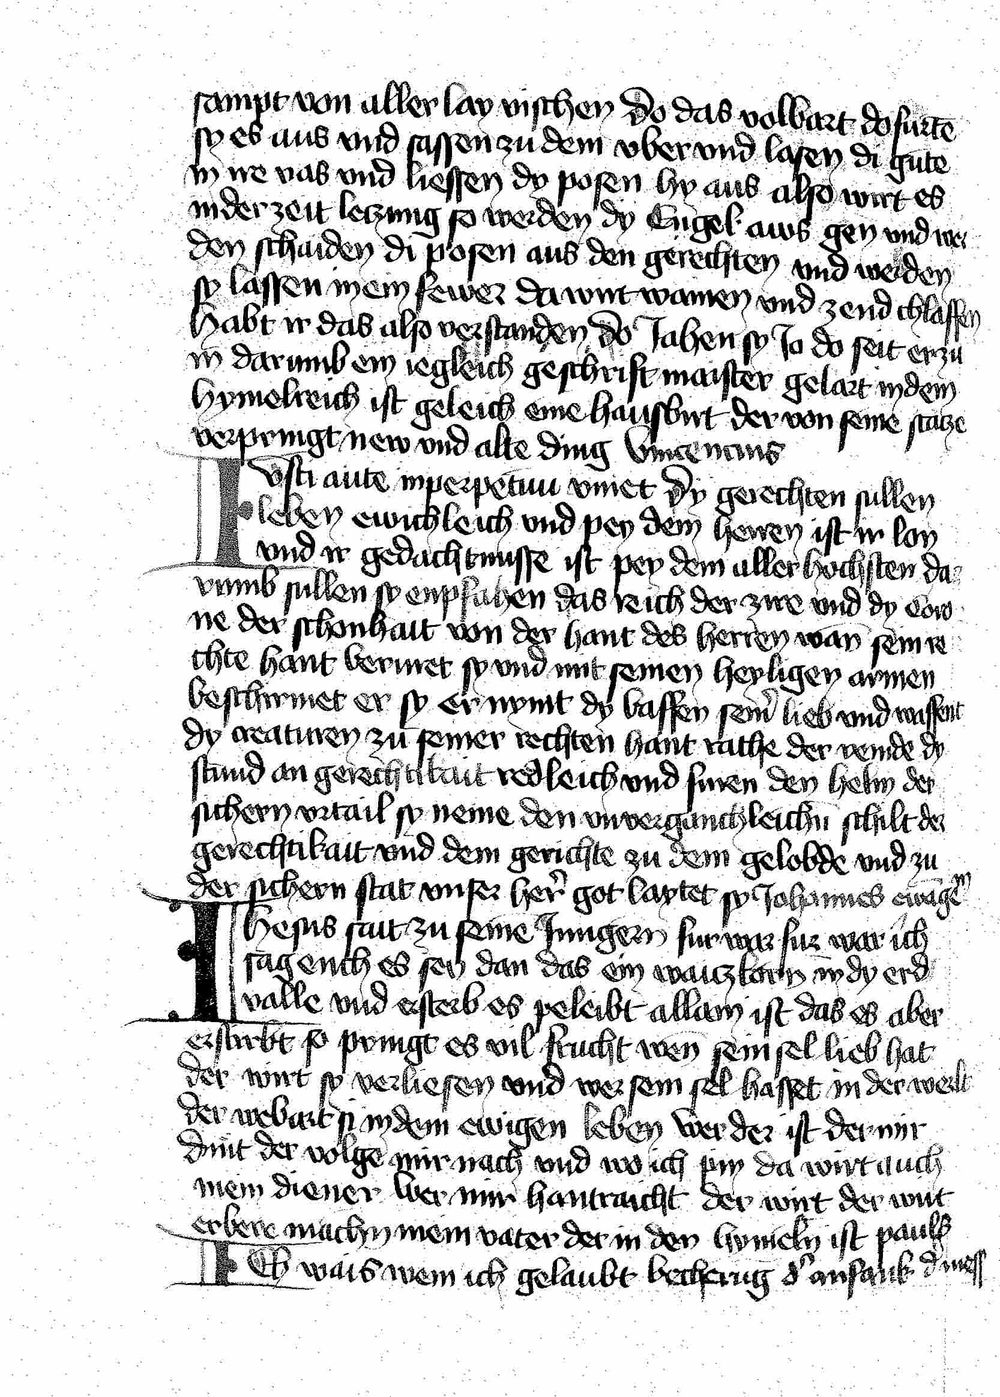 sampt von aller lay vischen Do das volbart do furte
sy es aus vnd sassen zu dem vber vnd lasen di gute
in ire vas vnd liessen dy posen hy aus also wirt es
in der zeit letzung so werden dy Engel aws gen vnd wer
den schaiden di posen aus den gerechten vnd werden
sy lassen in ein fewer da wirt wainen vnd zend chlaffen
Habt ir das also verstanden do Jahen sy Jo do seit er zu
in darumb ein iegleich geschrift maister gelart in dem
Hymelreich ist geleich eine hausbirt der von seine scatze
verpringt new vnd alte ding Vincencius
Iusti aute inperpetuu viuet Dy gerechten sullen
leben ewichleich vnd pey dem herren ist ir lon
vnd ir gedachtnusse ist pey dem aller hochsten da
rumb sullen sy enpfahen das reich der zire vnd dy Coro
ne der schonhait von der hant des herren wan sein re
chte hant beruret sy vnd mit seinen heyligen armen
beschirmet er sy er nymt dy baffen seinr lieb vnd waffent
dy creaturen zu seiner rechten hant rache der veinde dy
stund an gerechtikait redleich vnd furen den helm der
sichern vrtail sy neme den vnvergancleichn schilt der
gerechtikait vnd dem gerichte zu dem gelobde vnd zu
der sichern stat vnser herr got laytet sy Johannes ewagem
Ihesus sait zu seine Jungern fur war fur war ich
sag euch es sey dan das ein waiczkorn in dy erd
valle vnd ersterb es peleibt allain ist das es aber
erstirbt so pringt es vil frucht wen sein sel lieb hat
der wirt sy verliesen vnd wer sein sel hasset in der werlt
der webart si in dem ewigen leben Wer der ist der mir
dint der volge mir nach vnd wo ich pin da wirt auch
mein diener Wer mir hantraicht der wirt der wirt
erbere machn mein vater der in den hymeln ist pauls
Ich wais wem ich gelaubt becherug dr anfank d mess